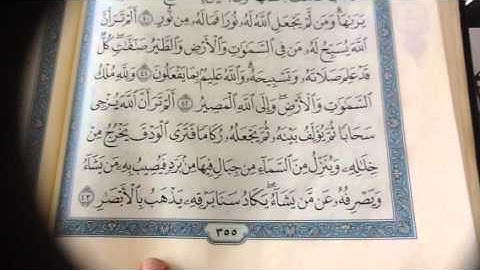 يَرَىٰهَا وَمَن لَّمْ يَجْعَلِ ٱللَّهُ لَهُۥ نُورًا فَمَا لَهُۥ مِن نُّورٍ ٤٠ أَلَمْ تَرَ أَنَّ
ٱللَّهَ يُسَبِّحُ لَهُۥ مَن فِى ٱلسَّمَٰوَٰتِ وَٱلْأَرْضِ وَٱلطَّيْرُ صَٰٓفَّٰتٍ كُلٌّ
قَدْ عَلِمَ صَلَاتَهُۥ وَتَسْبِيحَهُۥ وَٱللَّهُ عَلِيمٌۢ بِمَا يَفْعَلُونَ ٤١ وَلِلَّهِ مُلْكُ
ٱلسَّمَٰوَٰتِ وَٱلْأَرْضِ وَإِلَى ٱللَّهِ ٱلْمَصِيرُ ٤٢ أَلَمْ تَرَ أَنَّ ٱللَّهَ يُزْجِى
سَحَابًا ثُمَّ يُؤَلِّفُ بَيْنَهُۥ ثُمَّ يَجْعَلُهُۥ رُكَامًا فَتَرَى ٱلْوَدْقَ يَخْرُجُ مِنْ
خِلَٰلِهِۦ وَيُنَزِّلُ مِنَ ٱلسَّمَآءِ مِن جِبَالٍ فِيهَا مِنۢ بَرَدٍ فَيُصِيبُ بِهِۦ مَن يَشَآءُ
وَيَصْرِفُهُۥ عَن مَّن يَشَآءُ يَكَادُ سَنَا بَرْقِهِۦ يَذْهَبُ بِٱلْأَبْصَٰرِ ٤٣
٣٥٥